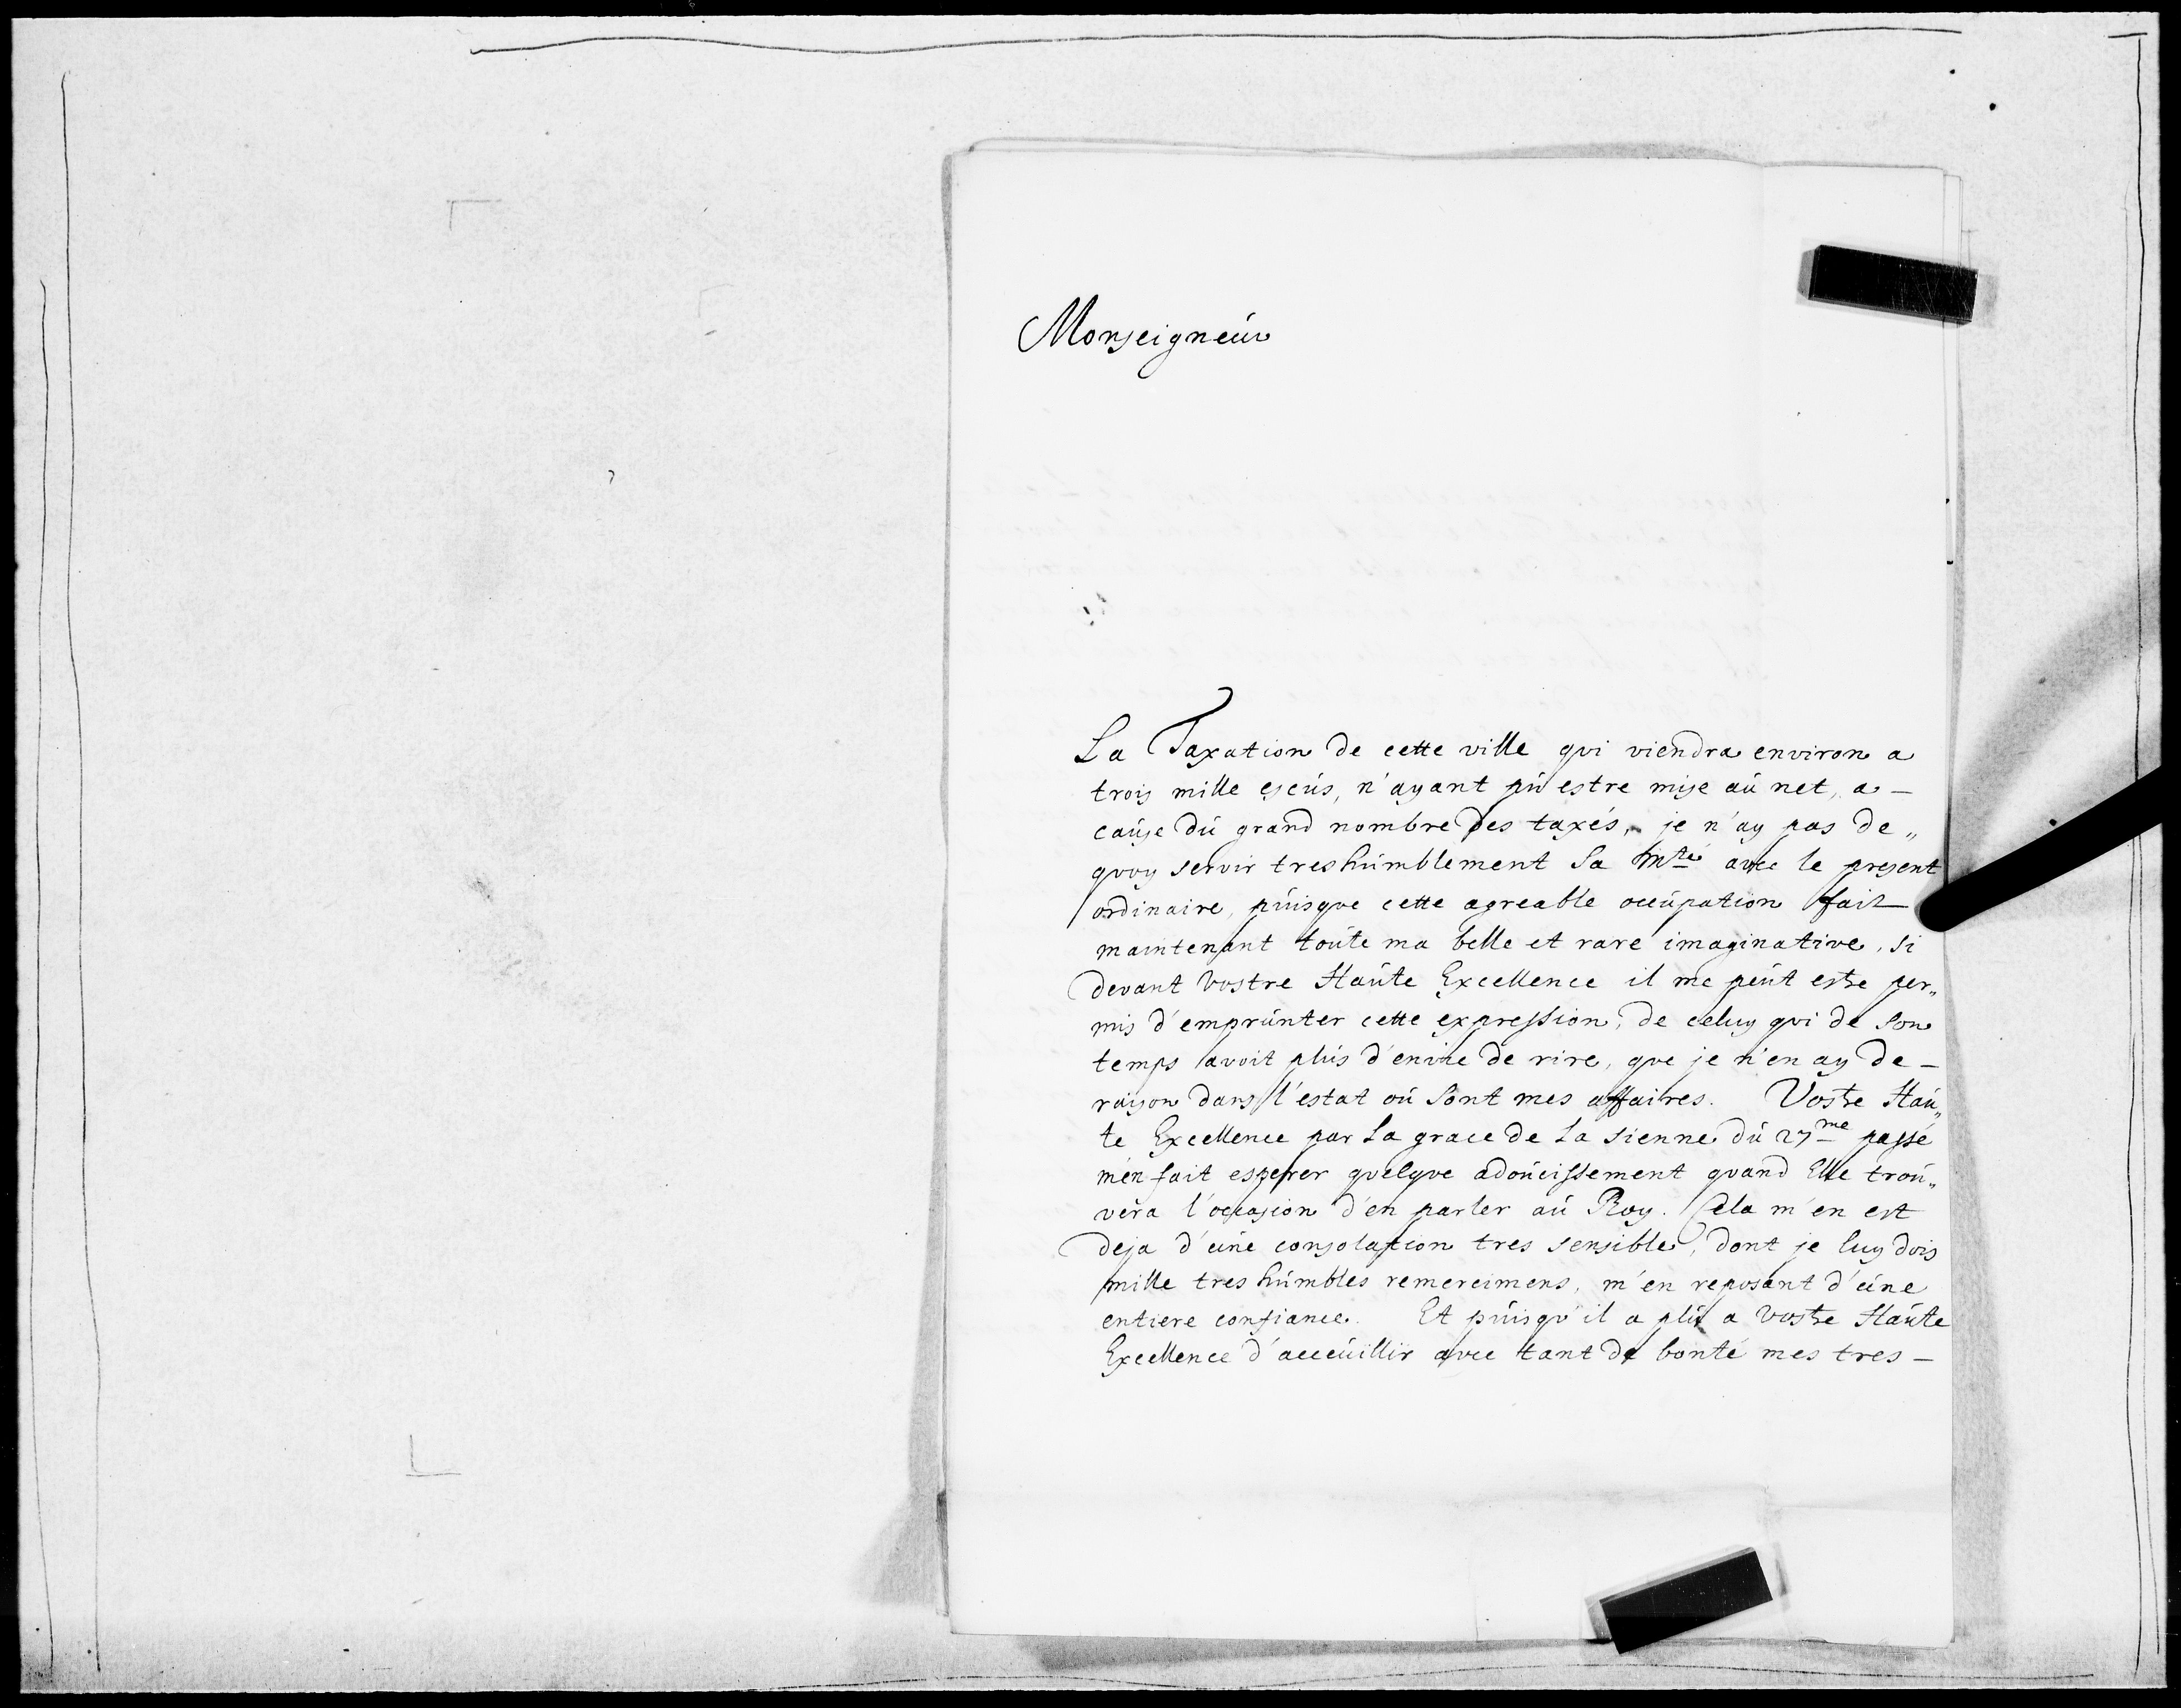 Monseigneúr
La Taxation de cette ville qvi viendra environ a
trois mille escús, n'ayant pú estre mise aú net, a -
caúse dú grand nombre des taxés, je n'ay pas de„
qvoy servir treshúmblement Sa Mté avec le present
ordinaire, púisqve cette agreable occúpation fait
maintenant toúte ma belle et rare imaginative, si
devant Vostre Haúte Excellence il me peút estre per„
mis d'emprúnter cette expression, de celuy qvi de son
temps avoit plús d'envie de rire, qve je n'en ay de -
raison dans l'estat oú sont mes affaires. Vostre Haú„
te Excellence par la grace de la sienne dú 27me passé
m'en fait esperer qvelqve adoúcissement qvand Elle troú„
vera l'occasion d'en parler aú Roy. Cela m'en est
deja d'úne consolation tres sensible, dont je luy dois
mille tres húmbles remercimens, m'en reposant d'úne
entiere confiance. Et púisqv'il a plú a Vostre Haúte
Excellence d'accúeillir avec tant de bonté mes tres -